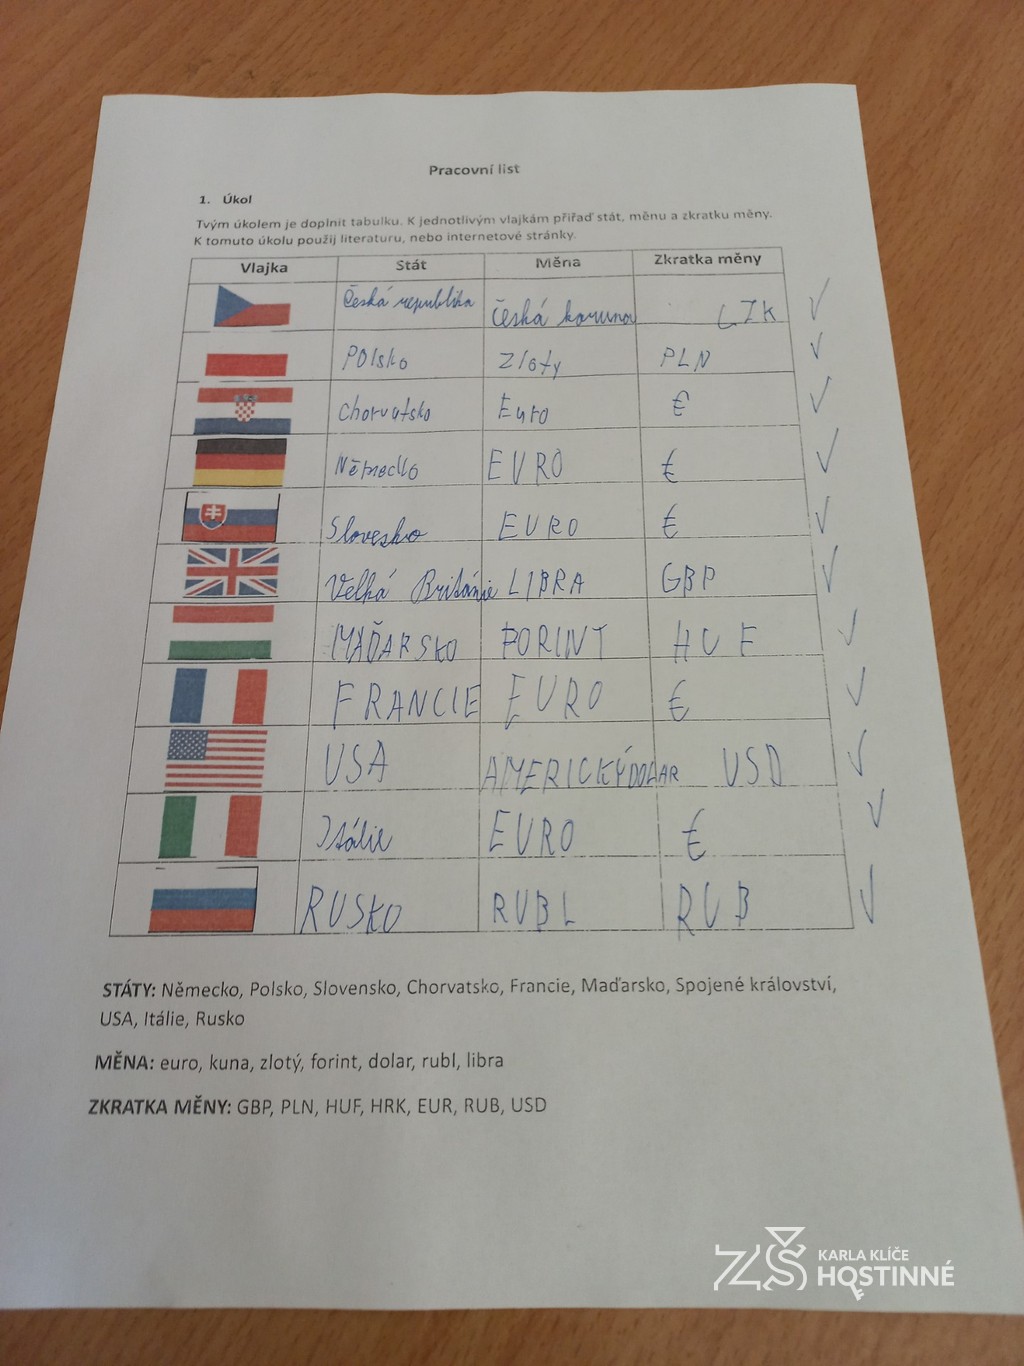 Pracovní list
1. Úkol
Tvým úkolem je doplnit tabulku. K jednotlivým vlajkám přiřaď stát, měnu a zkratku měny.
K tomuto úkolu použij literaturu, nebo internetové stránky.
Vlajka Stát Měna Zkratka měny
Česká republika Česká koruna CZK
Polsko Zloty PLN
Chorvatsko Euro €
Německo EURO €
Slovesko EURO €
Velká Británie LIBRA GBP
MAĎARSKO FORINT HUF
FRANCIE EURO €
USA AMERICKÝ DOLAR USD
Itálie EURO €
RUSKO RUBL RUB
STÁTY: Německo, Polsko, Slovensko, Chorvatsko, Francie, Maďarsko, Spojené království,
USA, Itálie, Rusko
MĚNA: euro, kuna, zlotý, forint, dolar, rubl, libra
ZKRATKA MĚNY: GBP, PLN, HUF, HRK, EUR, RUB, USD
ZŠ KARLA KLÍČE
HOSTINNÉ